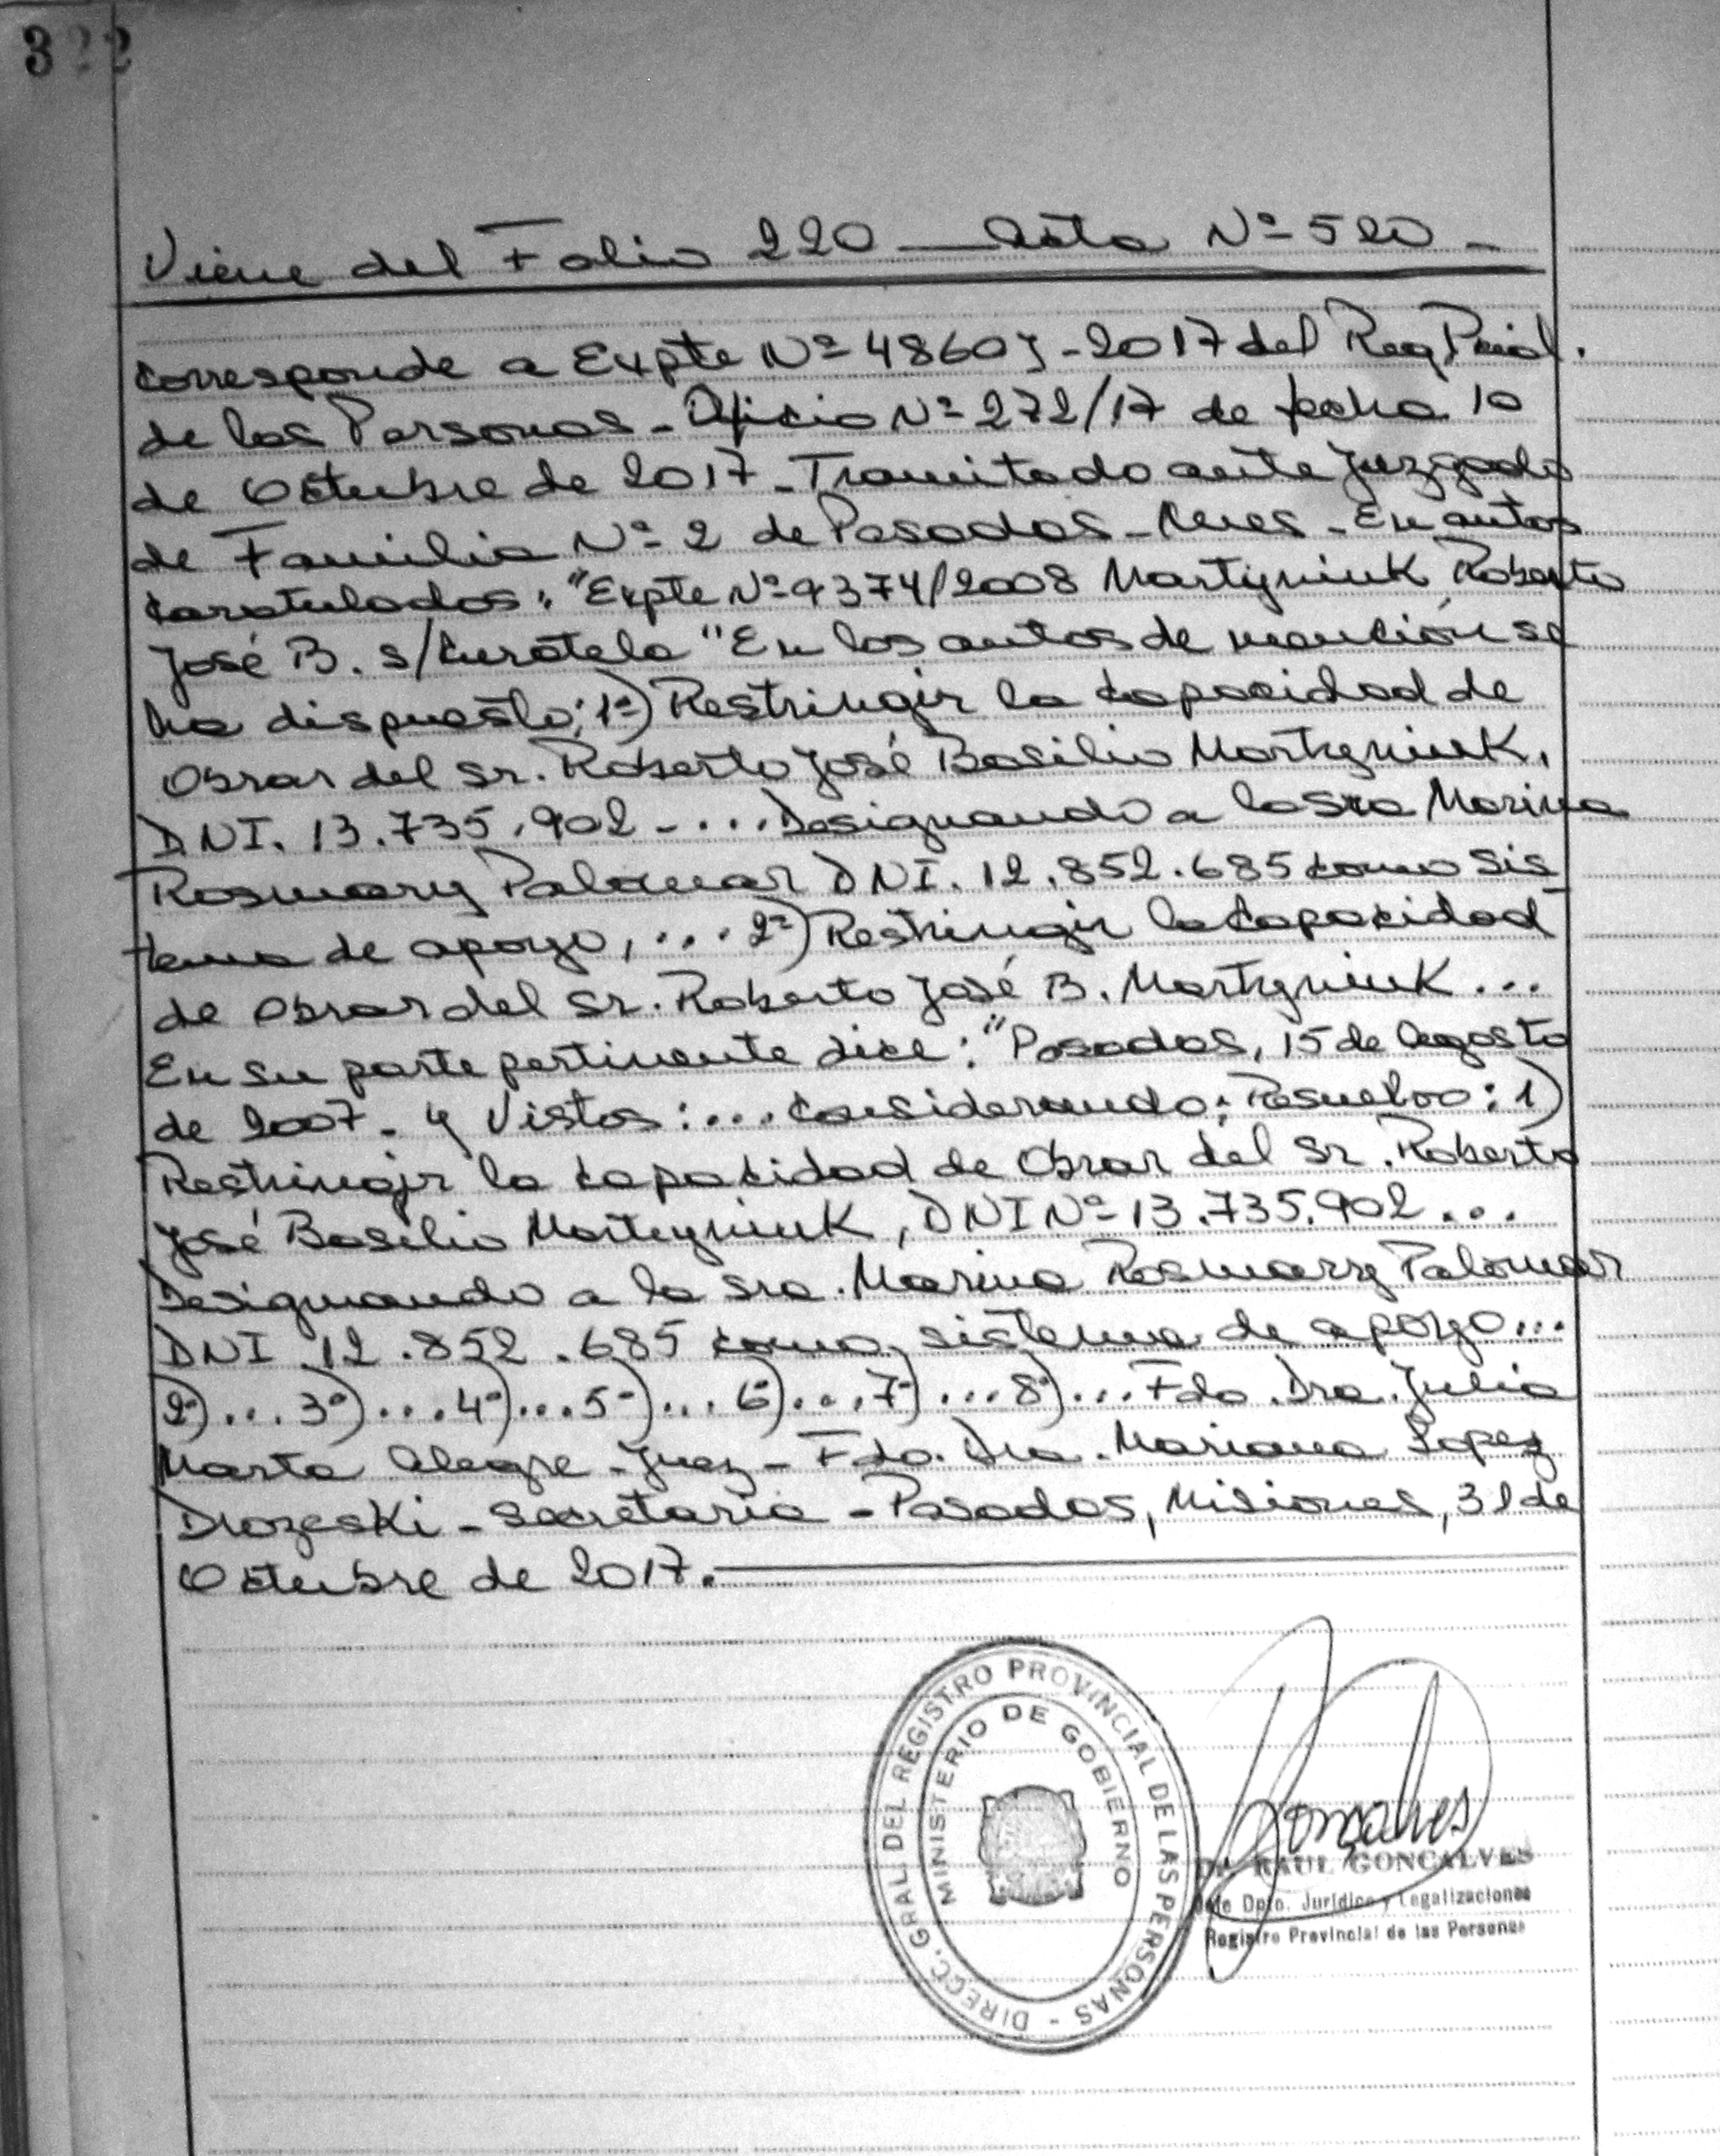 322
Viene del Folio 220 — Acta Nº 520 -
corresponde a Expte Nº 48603-2017 del Reg Pcial.
de las Personas - Oficio Nº 272/17 de fecha 10
de Octubre de 2017 - Tramitado ante Juzgado
de Familia Nº 2 de Posadas - Mnes - En autos
caratulados: "Expte Nº 9374/2008 Martyniuk Roberto
José B. s/curatela" En los autos de mención se
ha dispuesto: 1º) Restringir la capacidad de
Obrar del Sr. Roberto José Basilio Martyniuk,
DNI. 13.735.902 - ... Designando a la Sra Marina
Rosmary Palomar DNI. 12.852.685 como Sis
tema de apoyo, ... 2º) Restringir la Capacidad
de Obrar del Sr. Roberto José B. Martyniuk ...
En su parte pertinente dice: "Posadas, 15 de Agosto
de 2007. y Vistos: ... Considerando: Resuelvo: 1)
Restringir la capacidad de Obrar del Sr. Roberto
José Basilio Martyniuk, DNI Nº 13.735.902 ...
Designando a la Sra. Marina Rosmary Palomar
DNI 12.852.685 como sistema de apoyo ...
2º) ... 3º) ... 4º) ... 5º) ... 6º) ... 7º) ... 8º) ... Fdo. Dra. Julia
Marta Alegre - Juez - Fdo. Dra. Mariana Lopez
- Secretaria - Posadas, Misiones, 31 de
Octubre de 2017.
DIRECC. GRAL. DEL REGISTRO PROVINCIAL DE LAS PERSONAS -
MINISTERIO DE GOBIERNO
Gonçalves
Dr. RAUL GONCALVES
Jefe Dpto. Jurídico y Legalizaciones
Registro Provincial de las Personas